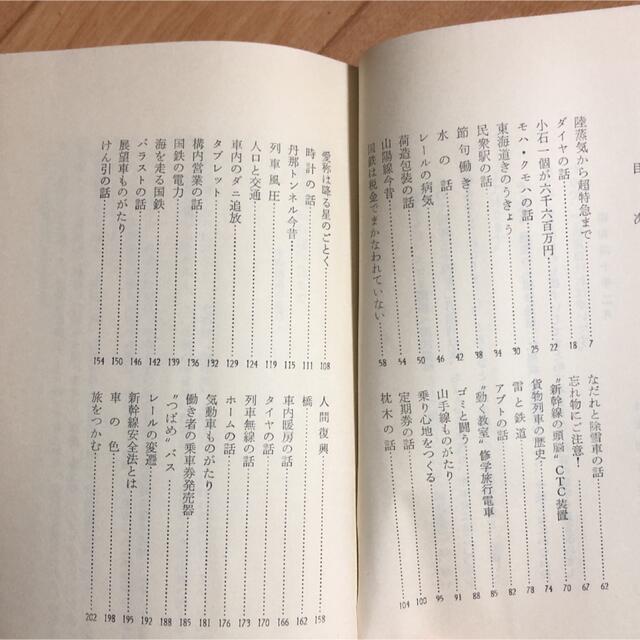 目次
陸蒸気から超特急まで 7
ダイヤの話 18
小石一個が六千六百万円 22
モハ・クモハの話 25
東海道きのうきょう 30
民衆駅の話 34
節句働き 38
水の話 42
レールの病気 46
荷造包装の話 50
山陽線今昔 54
国鉄は税金でまかなわれていない 58
なだれと除雪車の話 62
忘れ物にご注意! 67
"新幹線の頭脳"CTC装置 70
貨物列車の歴史 74
雷と鉄道 78
アプトの話 82
"動く教室"修学旅行電車 85
ゴミと闘う 88
山手線ものがたり 91
乗り心地をつくる 95
定期券の話 100
枕木の話 104
愛称は降る星のごとく 108
時計の話 111
丹那トンネル今昔 115
列車風圧 119
人口と交通 124
車内のダニ追放 129
タブレット 132
構内営業の話 136
国鉄の電力 139
海を走る国鉄 142
バラストの話 146
展望車ものがたり 150
けん引の話 154
人間復興 158
橋 162
車内暖房の話 166
タイヤの話 170
列車無線の話 173
ホームの話 176
気動車ものがたり 181
働き者の乗車券発売器 185
"つばめ"バス 188
レールの変遷 192
新幹線安全法とは 195
車の色 198
旅をつかむ 202